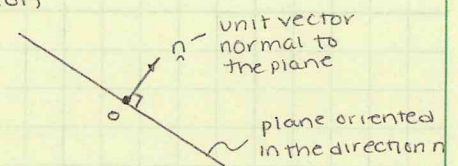 n unit vector
normal to
the plane
o
plane oriented
in the direction n